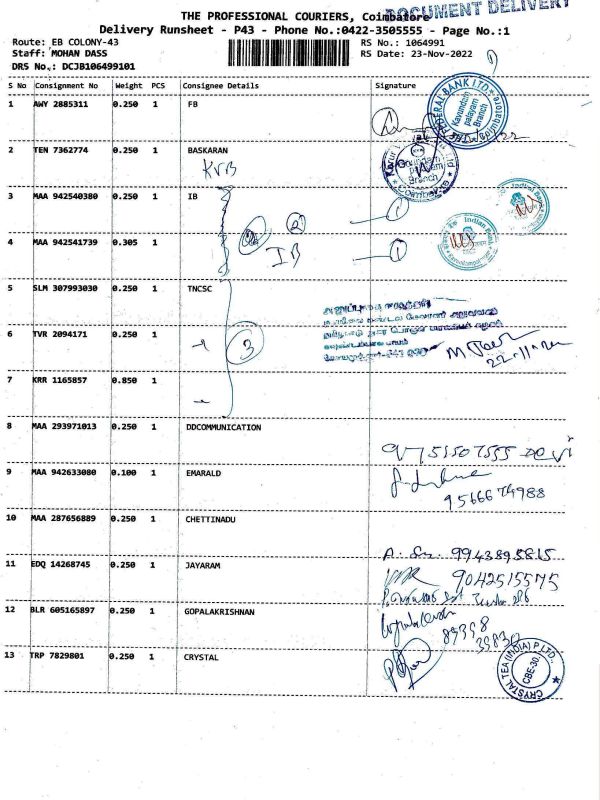 DOCUMENT DELIVERY
THE PROFESSIONAL COURIERS, Coimbatore
Delivery Runsheet - P43 - Phone No.:0422-3505555 - Page No.:1
Route: EB COLONY-43 RS No.: 1064991
Staff: MOHAN DASS RS Date: 23-Nov-2022
DRS No.: DCJB106499101
S No Consignment No Weight PCS Consignee Details Signature
1 AWY 2885311 0.250 1 FB
FEDERAL BANK LTD. Kavundam palayam Branch Coimbatore
2 TEN 7362774 0.250 1 BASKARAN
KVB
Branch Coimbatore
3 MAA 942540380 0.250 1 IB
2 IB 1
Indian Bank
4 MAA 942541739 0.305 1
1
Indian Bank
5 SLM 307993030 0.250 1 TNCSC
6 TVR 2094171 0.250 1
3
22-11-22
7 KRR 1165857 0.850 1
8 MAA 293971013 0.250 1 DDCOMMUNICATION
9751507555
9 MAA 942633080 0.100 1 EMARALD
9566674988
10 MAA 287656889 0.250 1 CHETTINADU
9943895815
11 EDQ 14268745 0.250 1 JAYARAM
9042515575
12 BLR 605165897 0.250 1 GOPALAKRISHNAN
89398
39830
13 TRP 7829801 0.250 1 CRYSTAL
CRYSTAL TEA (INDIA) P.LTD., CBE-30.